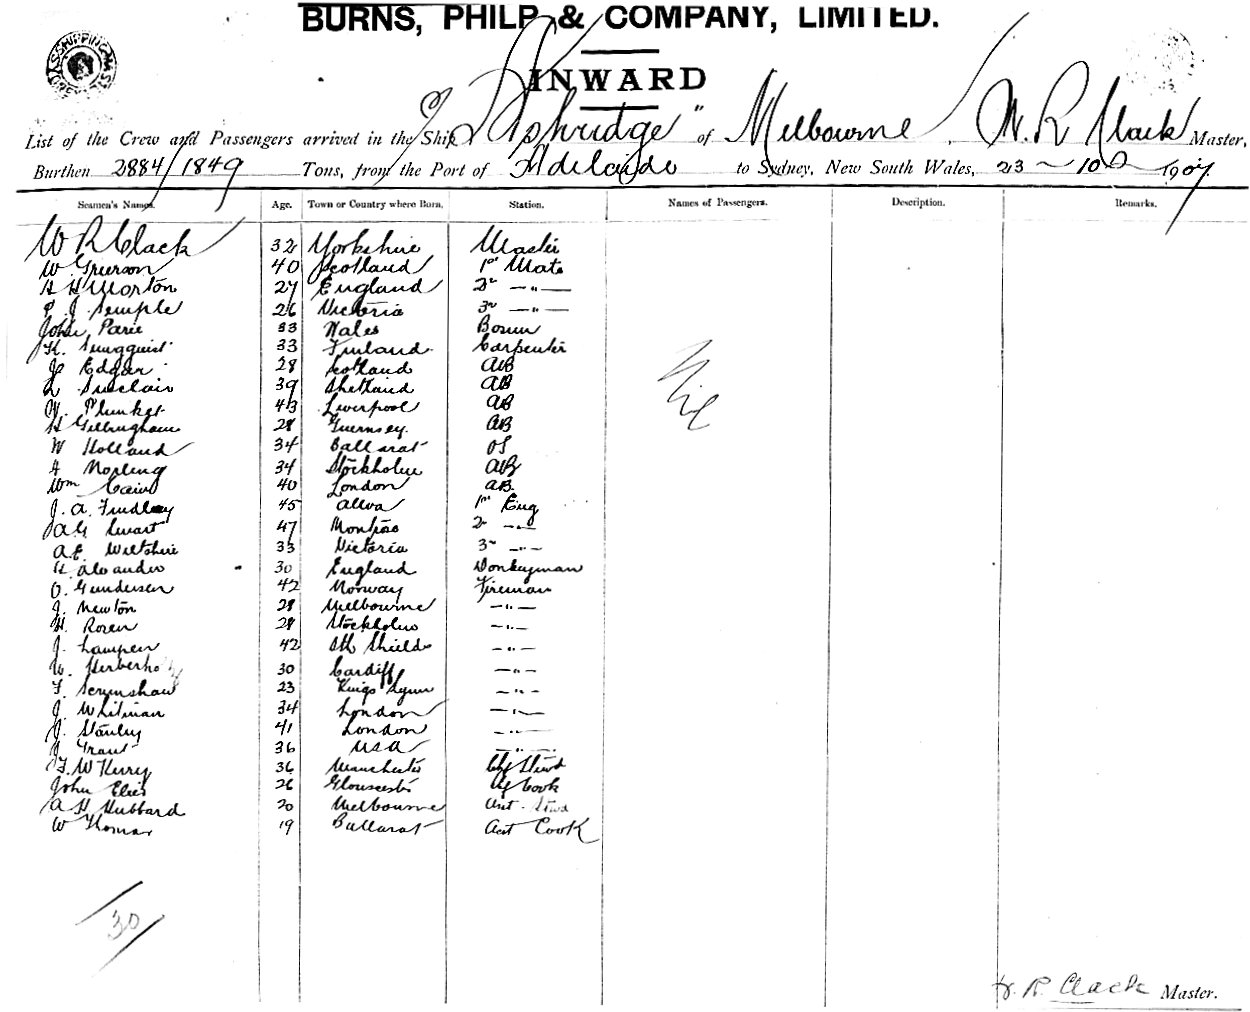 BURNS, PHILP & COMPANY, LIMITED.
INWARD
List of the Crew and Passengers arrived in the Ship "Ashridge" of Melbourne, W. R Clack Master,
Burthen 2884/1849 Tons, from the Port of Adelaide to Sydney, New South Wales, 23 10 1907
Seamen's Names. Age. Town or Country where Born. Station. Names of Passengers. Description. Remarks.
W R Clack 32 Yorkshire Master
W Grierson 40 Scotland 1st Mate
H H Morton 27 England 2nd — " —
P J Semple 26 Victoria 3rd — " —
John Parie 33 Wales Bosun
K. Sungquist 33 Finland Carpenter
J Edgar 28 Scotland AB
L Sinclair 39 Shetland AB
W. Plunket 43 Liverpool AB
H Gillingham 28 Guernsey AB
W Holland 34 Ballarat OS
Norling 34 Stockholm AB
Wm Cairns 40 London AB
J. A. Findlay 45 Alloa 1st Eng
A G 47 2nd — " —
A. E. Wiltshire 33 Victoria 3rd — " —
30 England Donkeyman
O. Gundersen 42 Norway Fireman
J. Newton 28 Melbourne — " —
H. Rosen 28 Stockholm — " —
J. Lampen 42 Sth Shields — " —
W. 30 Cardiff — " —
F. Scrimshaw 23 Kings Lynn — " —
J. Whitman 34 London — " —
J. Stanley 41 London — " —
J Grant 36 USA — " —
F. W Kerry 36 Manchester Chf Stwd
John Elies 26 Gloucester Chf Cook
A H Hubbard 20 Melbourne Asst. Stwd
W Thomas 19 Ballarat Asst Cook
Nil
30
W. R. Clack Master.